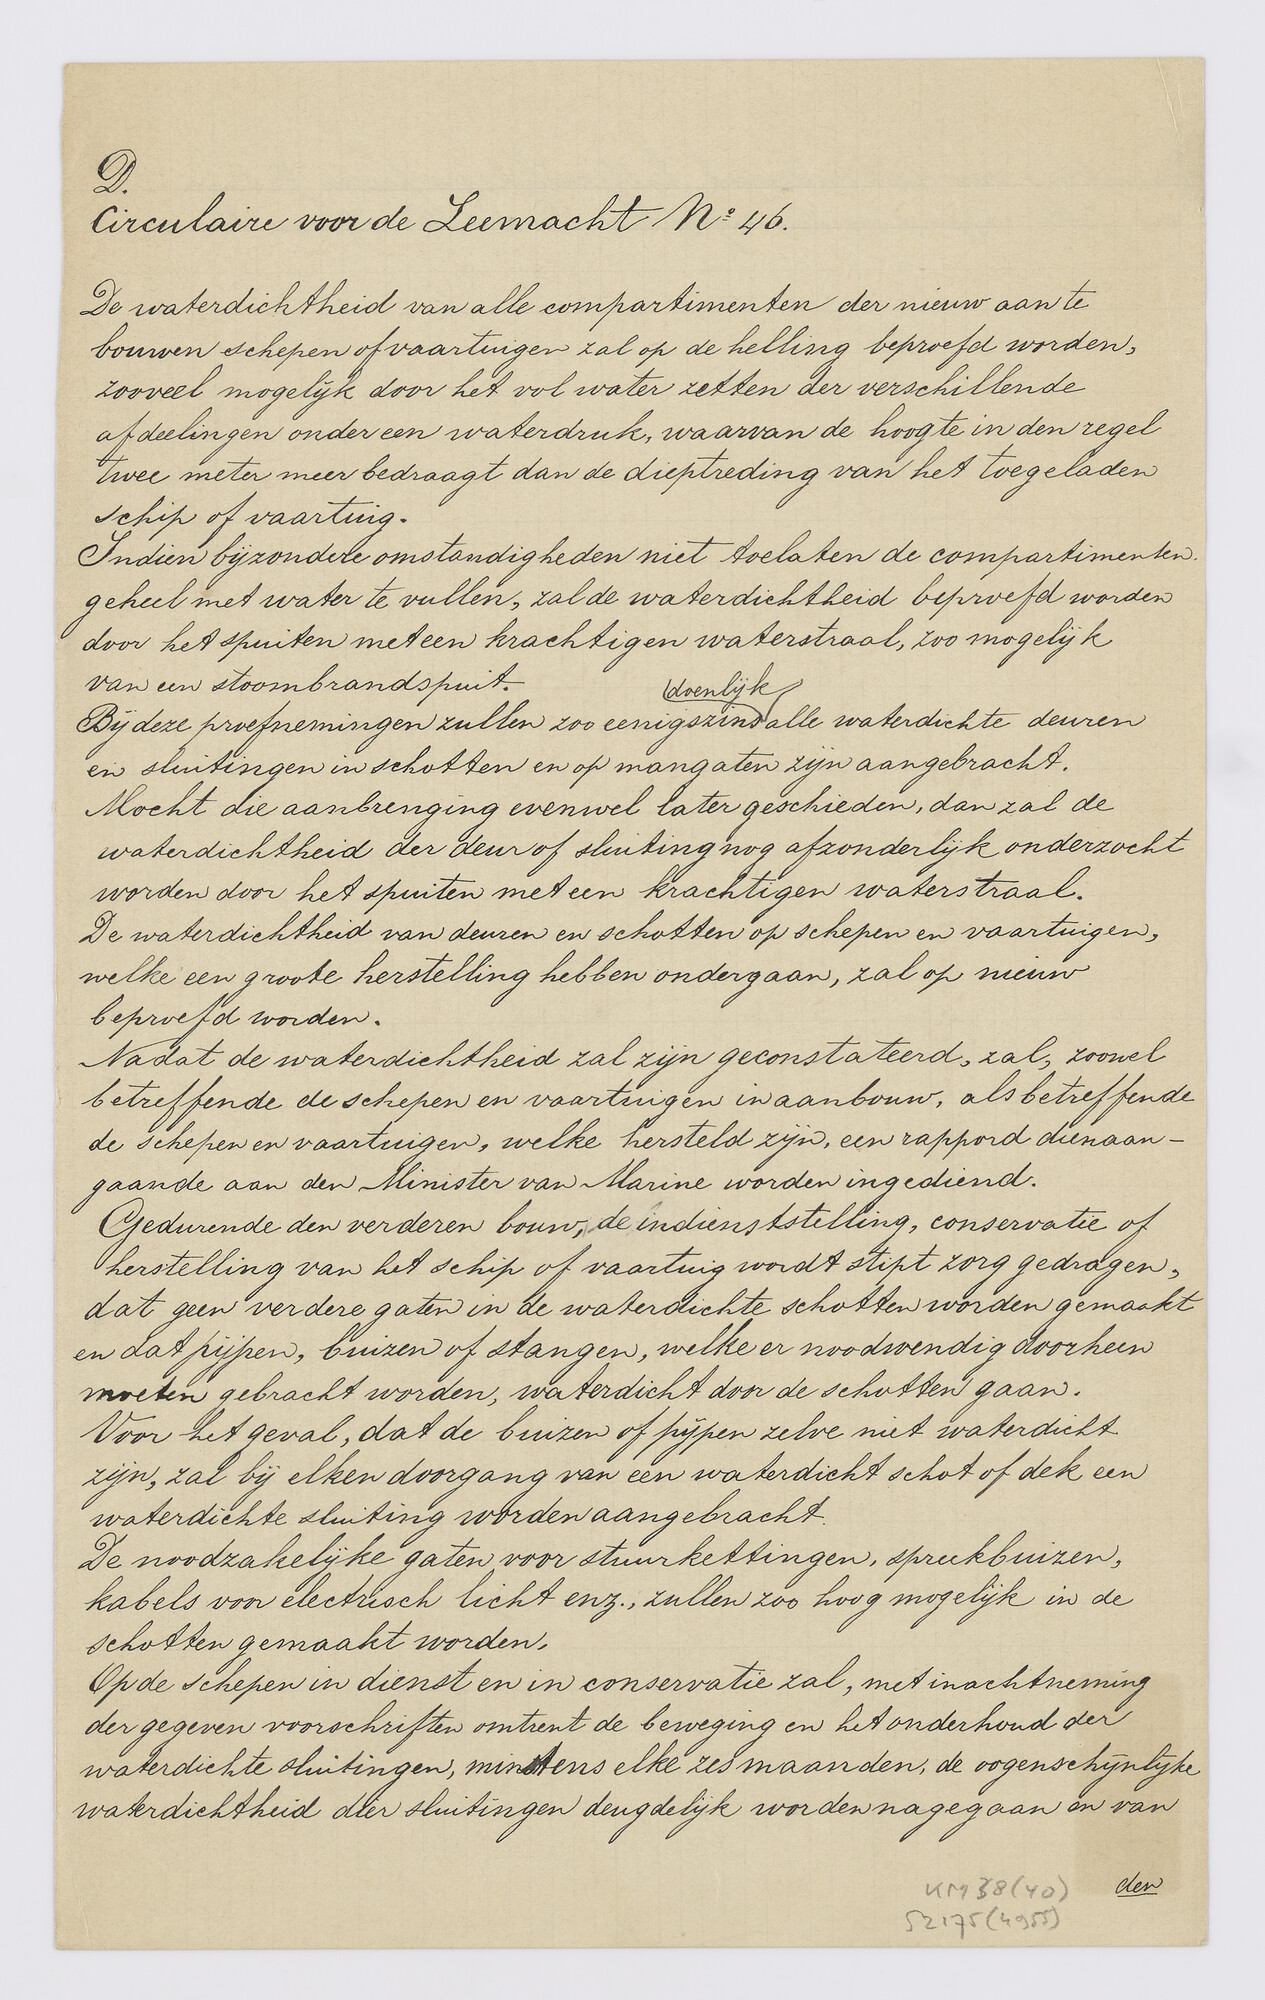 D.
Circulaire voor de Zeemacht No. 46.
De waterdichtheid van alle compartimenten der nieuw aan te
bouwen schepen of vaartuigen zal op de helling beproefd worden,
zooveel mogelijk door het vol water zetten der verschillende
afdeelingen onder een waterdruk, waarvan de hoogte in den regel
twee meter meer bedraagt dan de dieptreding van het toegeladen
schip of vaartuig.
Indien bijzondere omstandigheden niet toelaten de compartimenten
geheel met water te vullen, zal de waterdichtheid beproefd worden
door het spuiten met een krachtigen waterstraal, zoo mogelijk
van een stoombrandspuit.
doenlijk
Bij deze proefnemingen zullen zoo eenigszins alle waterdichte deuren
en sluitingen in schotten en op mangaten zijn aangebracht.
Mocht die aanbrenging evenwel later geschieden, dan zal de
waterdichtheid der deur of sluiting nog afzonderlijk onderzocht
worden door het spuiten met een krachtigen waterstraal.
De waterdichtheid van deuren en schotten op schepen en vaartuigen,
welke een groote herstelling hebben ondergaan, zal op nieuw
beproefd worden.
Nadat de waterdichtheid zal zijn geconstateerd, zal, zoowel
betreffende de schepen en vaartuigen in aanbouw, als betreffende
de schepen en vaartuigen, welke hersteld zijn, een rapport dienaan-
gaande aan den Minister van Marine worden ingediend.
Gedurende den verderen bouw, de indienststelling, conservatie of
herstelling van het schip of vaartuig wordt stipt zorg gedragen,
dat geen verdere gaten in de waterdichte schotten worden gemaakt
en dat pijpen, buizen of stangen, welke er noodwendig doorheen
moeten gebracht worden, waterdicht door de schotten gaan.
Voor het geval, dat de buizen of pijpen zelve niet waterdicht
zijn, zal bij elken doorgang van een waterdicht schot of dek een
waterdichte sluiting worden aangebracht.
De noodzakelijke gaten voor stuurkettingen, spreekbuizen,
kabels voor electrisch licht enz., zullen zoo hoog mogelijk in de
schotten gemaakt worden.
Op de schepen in dienst en in conservatie zal, met inachtneming
der gegeven voorschriften omtrent de beweging en het onderhoud der
waterdichte sluitingen, minstens elke zes maanden, de oogenschijnlijke
waterdichtheid dier sluitingen deugdelijk worden nagegaan en van
den
KM 38 (40)
52175 (4955)